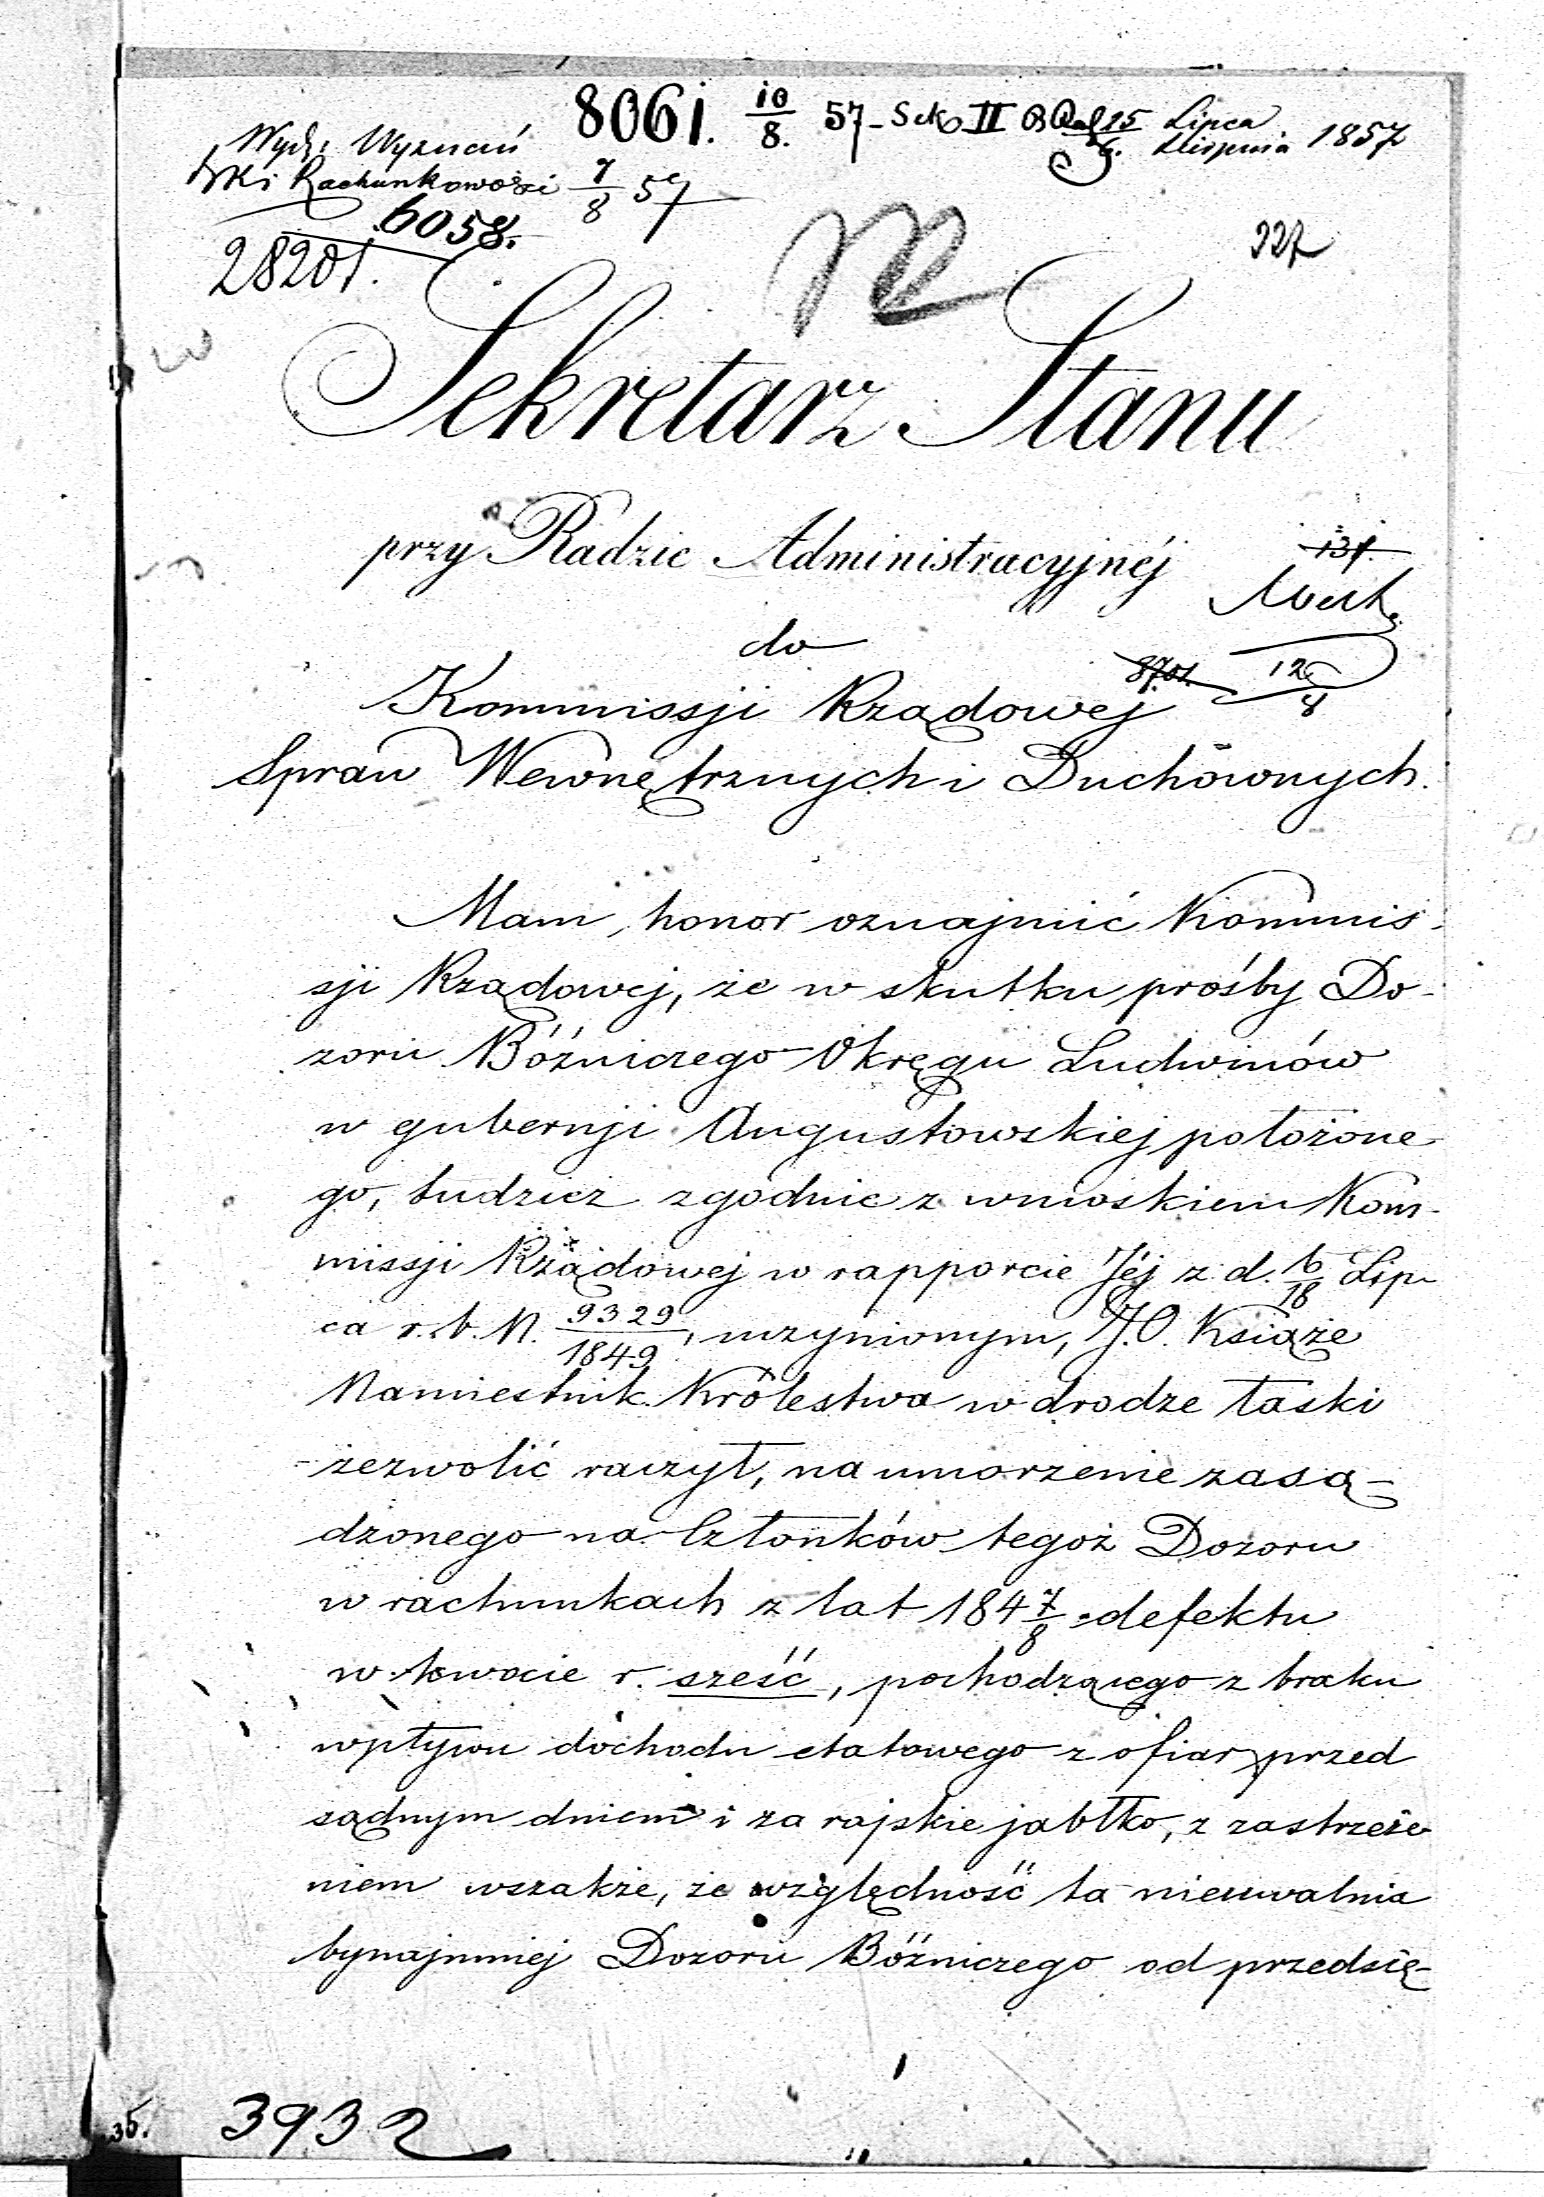 8061. 10/8. 57 - Sek II 25/6. Lipca Sierpnia 1857
Wydz. Wyznań
Ski Rachunkowości 7/8 57
6058.
28201.
227
Sekretarz Stanu
przy Radzie Administracyjnéj
131.
do
8701. 12/8
Kommissji Rządowej
Spraw Wewnętrznych i Duchównych.
Mam honor oznajmić Kommis-
sji Rządowej, że w skutku prośby Do-
zoru Bóźniczego Okręgu Ludwinów
w gubernji Augustowskiej położone-
go, tudzież zgodnie z wnioskiem Kom-
missji Rządowej w rapporcie Jéj z d. 6/18 Lip-
ca r. b. N. 9329/1849, uczynionym, J. O. Książe
Namiestnik Królestwa w drodze łaski
zezwolić raczył, na umorzenie zasą-
dzonego na Członków tegoż Dozoru
w rachunkach z lat 184 7/8 defektu
w kwocie r. sześć, pochodzącego z braku
wpływu dochodu etatowego z ofiar przed
sądnym dniem i za rajskie jabłko, z zastrzeże-
niem wszakże, że względność ta nieuwalnia
bynajmniej Dozoru Bóźniczego od przedsię-
35.
3932